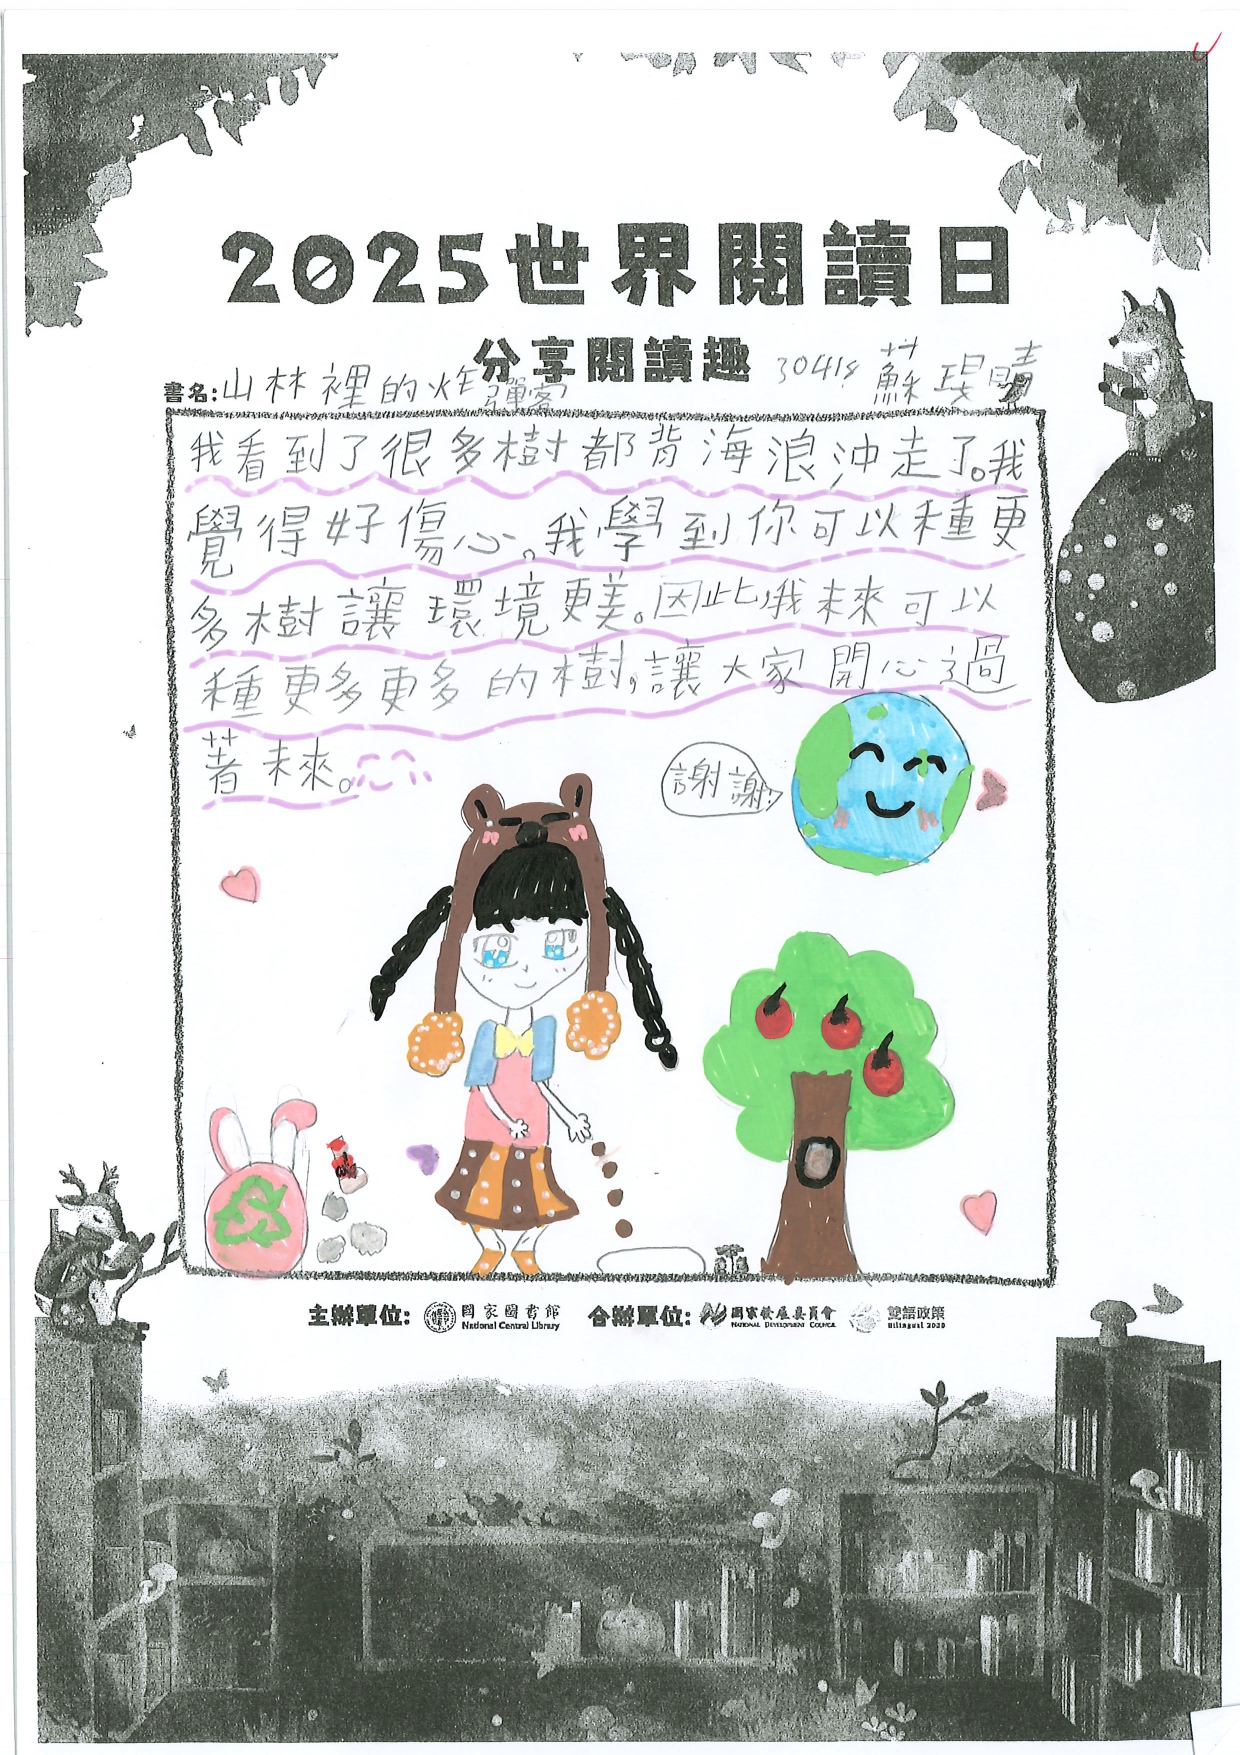 2025世界閱讀日
分享閱讀趣
書名:山林裡的炸彈客
30418 蘇琝晴
我看到了很多樹都背海浪沖走了。我
覺得好傷心。我學到你可以種更
多樹讓環境更美。因此,我未來可以
種更多更多的樹,讓大家開心過
著未來。
謝謝
主辦單位: 國家圖書館 National Central Library 合辦單位: 國家發展委員會 NATIONAL DEVELOPMENT COUNCIL 雙語政策 Bilingual 2030